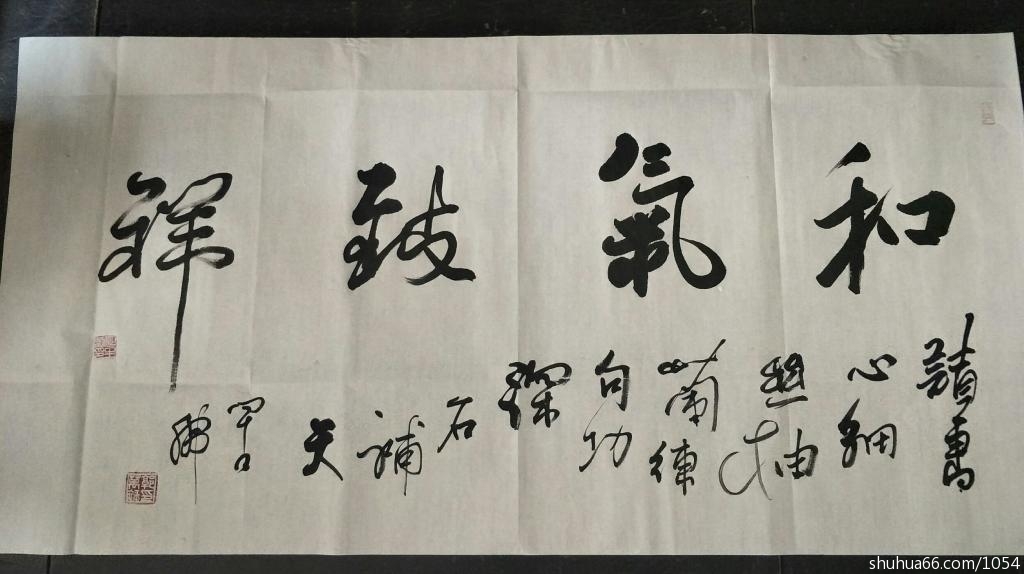 和氣致祥
讀書
心細
絲抽
繭練
句功
深
石
補
天
shuhua66.com/1054